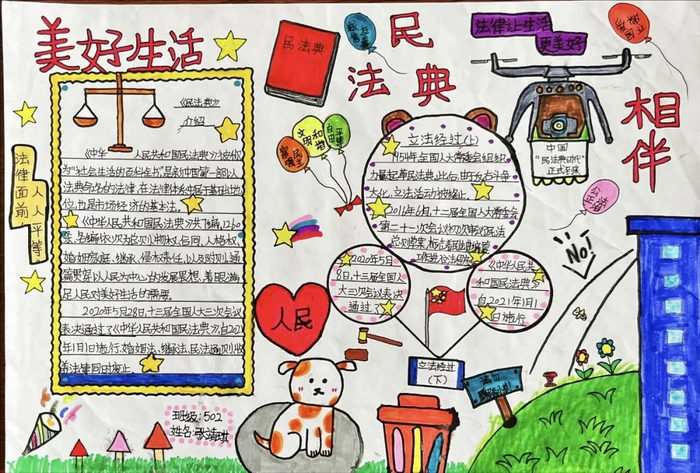 美好生活
民法典
相伴
民法典
法律让生活
更美好
《民法典》
介绍
《中华人民共和国民法典》被称
为"社会生活的百科全书"是新中国第一部以
法典命名的法律,在法律体系中居于基础性地
位,也是市场经济的基本法。
《中华人民共和国民法典》共7编,1260
条,各编依次为总则、物权、合同、人格权、
婚姻家庭、继承、侵权责任,以及附则。通
篇贯穿以人民为中心的发展思想,着眼满
足人民对美好生活的需要。
2020年5月28日,十三届全国人大三次会议
表决通过了《中华人民共和国民法典》,自2021
年1月1日施行。婚姻法、继承法、民法通则
法律同时废止。
法律面前
人人平等
文明
和谐
富强
民主
立法经过(上)
1954年全国人大常委会组织
力量起草民法典,此后
立法活动被终止。
2016年6月,十二届全国人大常委会
第二十一次会议初次审议民法
总则草案,标志着
2020年5月2
8日,十三届全国人
大三次会议表决
通过了
《中华人民共
和国民法典》
自2021年1月1
日施行
立法经过
(下)
人民
中国
"民法典时代"
正式到来
NO!
班级:502
姓名: